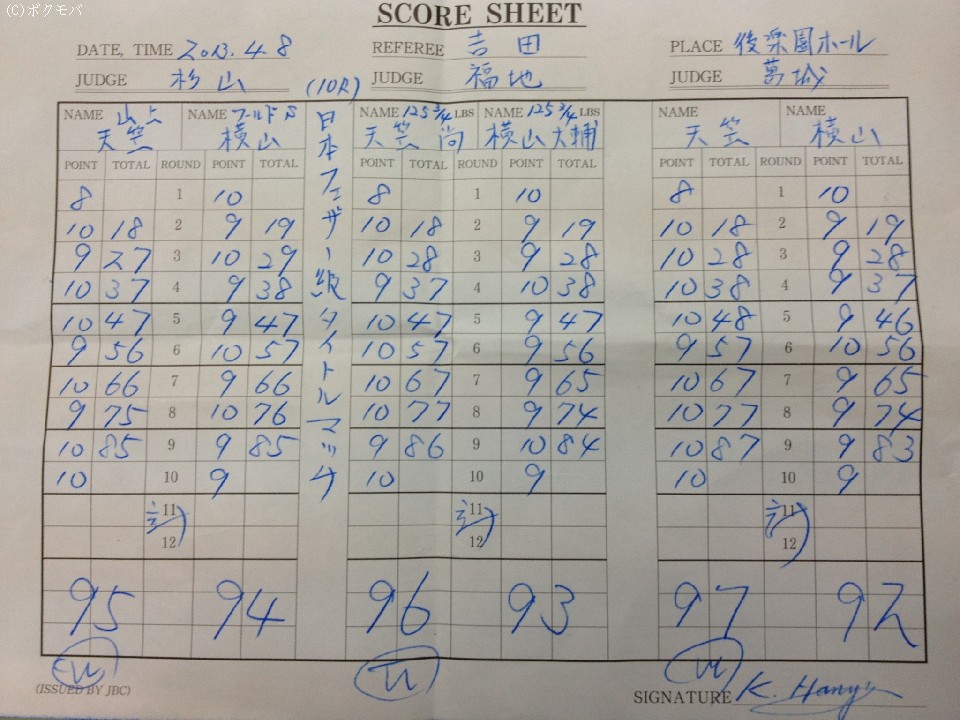 (C)ボクモバ
SCORE SHEET
DATE, TIME 2013.4.8 REFEREE 吉田 PLACE 後楽園ホール
JUDGE 杉山 (10R) JUDGE 福地 JUDGE 葛城
日本フェザー級タイトルマッチ
NAME 山上 NAME ワールドS NAME 125 3/4 LBS NAME 125 3/4 LBS NAME NAME
天笠 横山 天笠 尚 横山大輔 天笠 横山
POINT TOTAL ROUND POINT TOTAL POINT TOTAL ROUND POINT TOTAL POINT TOTAL ROUND POINT TOTAL
8 1 10 8 1 10 8 1 10
10 18 2 9 19 10 18 2 9 19 10 18 2 9 19
9 27 3 10 29 10 28 3 9 28 10 28 3 9 28
10 37 4 9 38 9 37 4 10 38 10 38 4 9 37
10 47 5 9 47 10 47 5 9 47 10 48 5 9 46
9 56 6 10 57 10 57 6 9 56 9 57 6 10 56
10 66 7 9 66 10 67 7 9 65 10 67 7 9 65
9 75 8 10 76 10 77 8 9 74 10 77 8 9 74
10 85 9 9 85 9 86 9 10 84 10 87 9 9 83
10 10 9 10 10 9 10 10 9
計 11 計 11 計 11
12 12 12
95 94 96 93 97 92
W W W
(ISSUED BY JBC) SIGNATURE K.